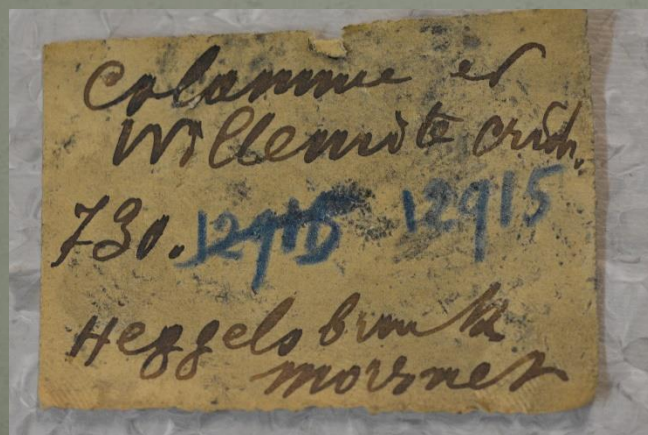 Calamine et
Willemite crist.
730. 12915 12915
Heggelsbruck
moresnet